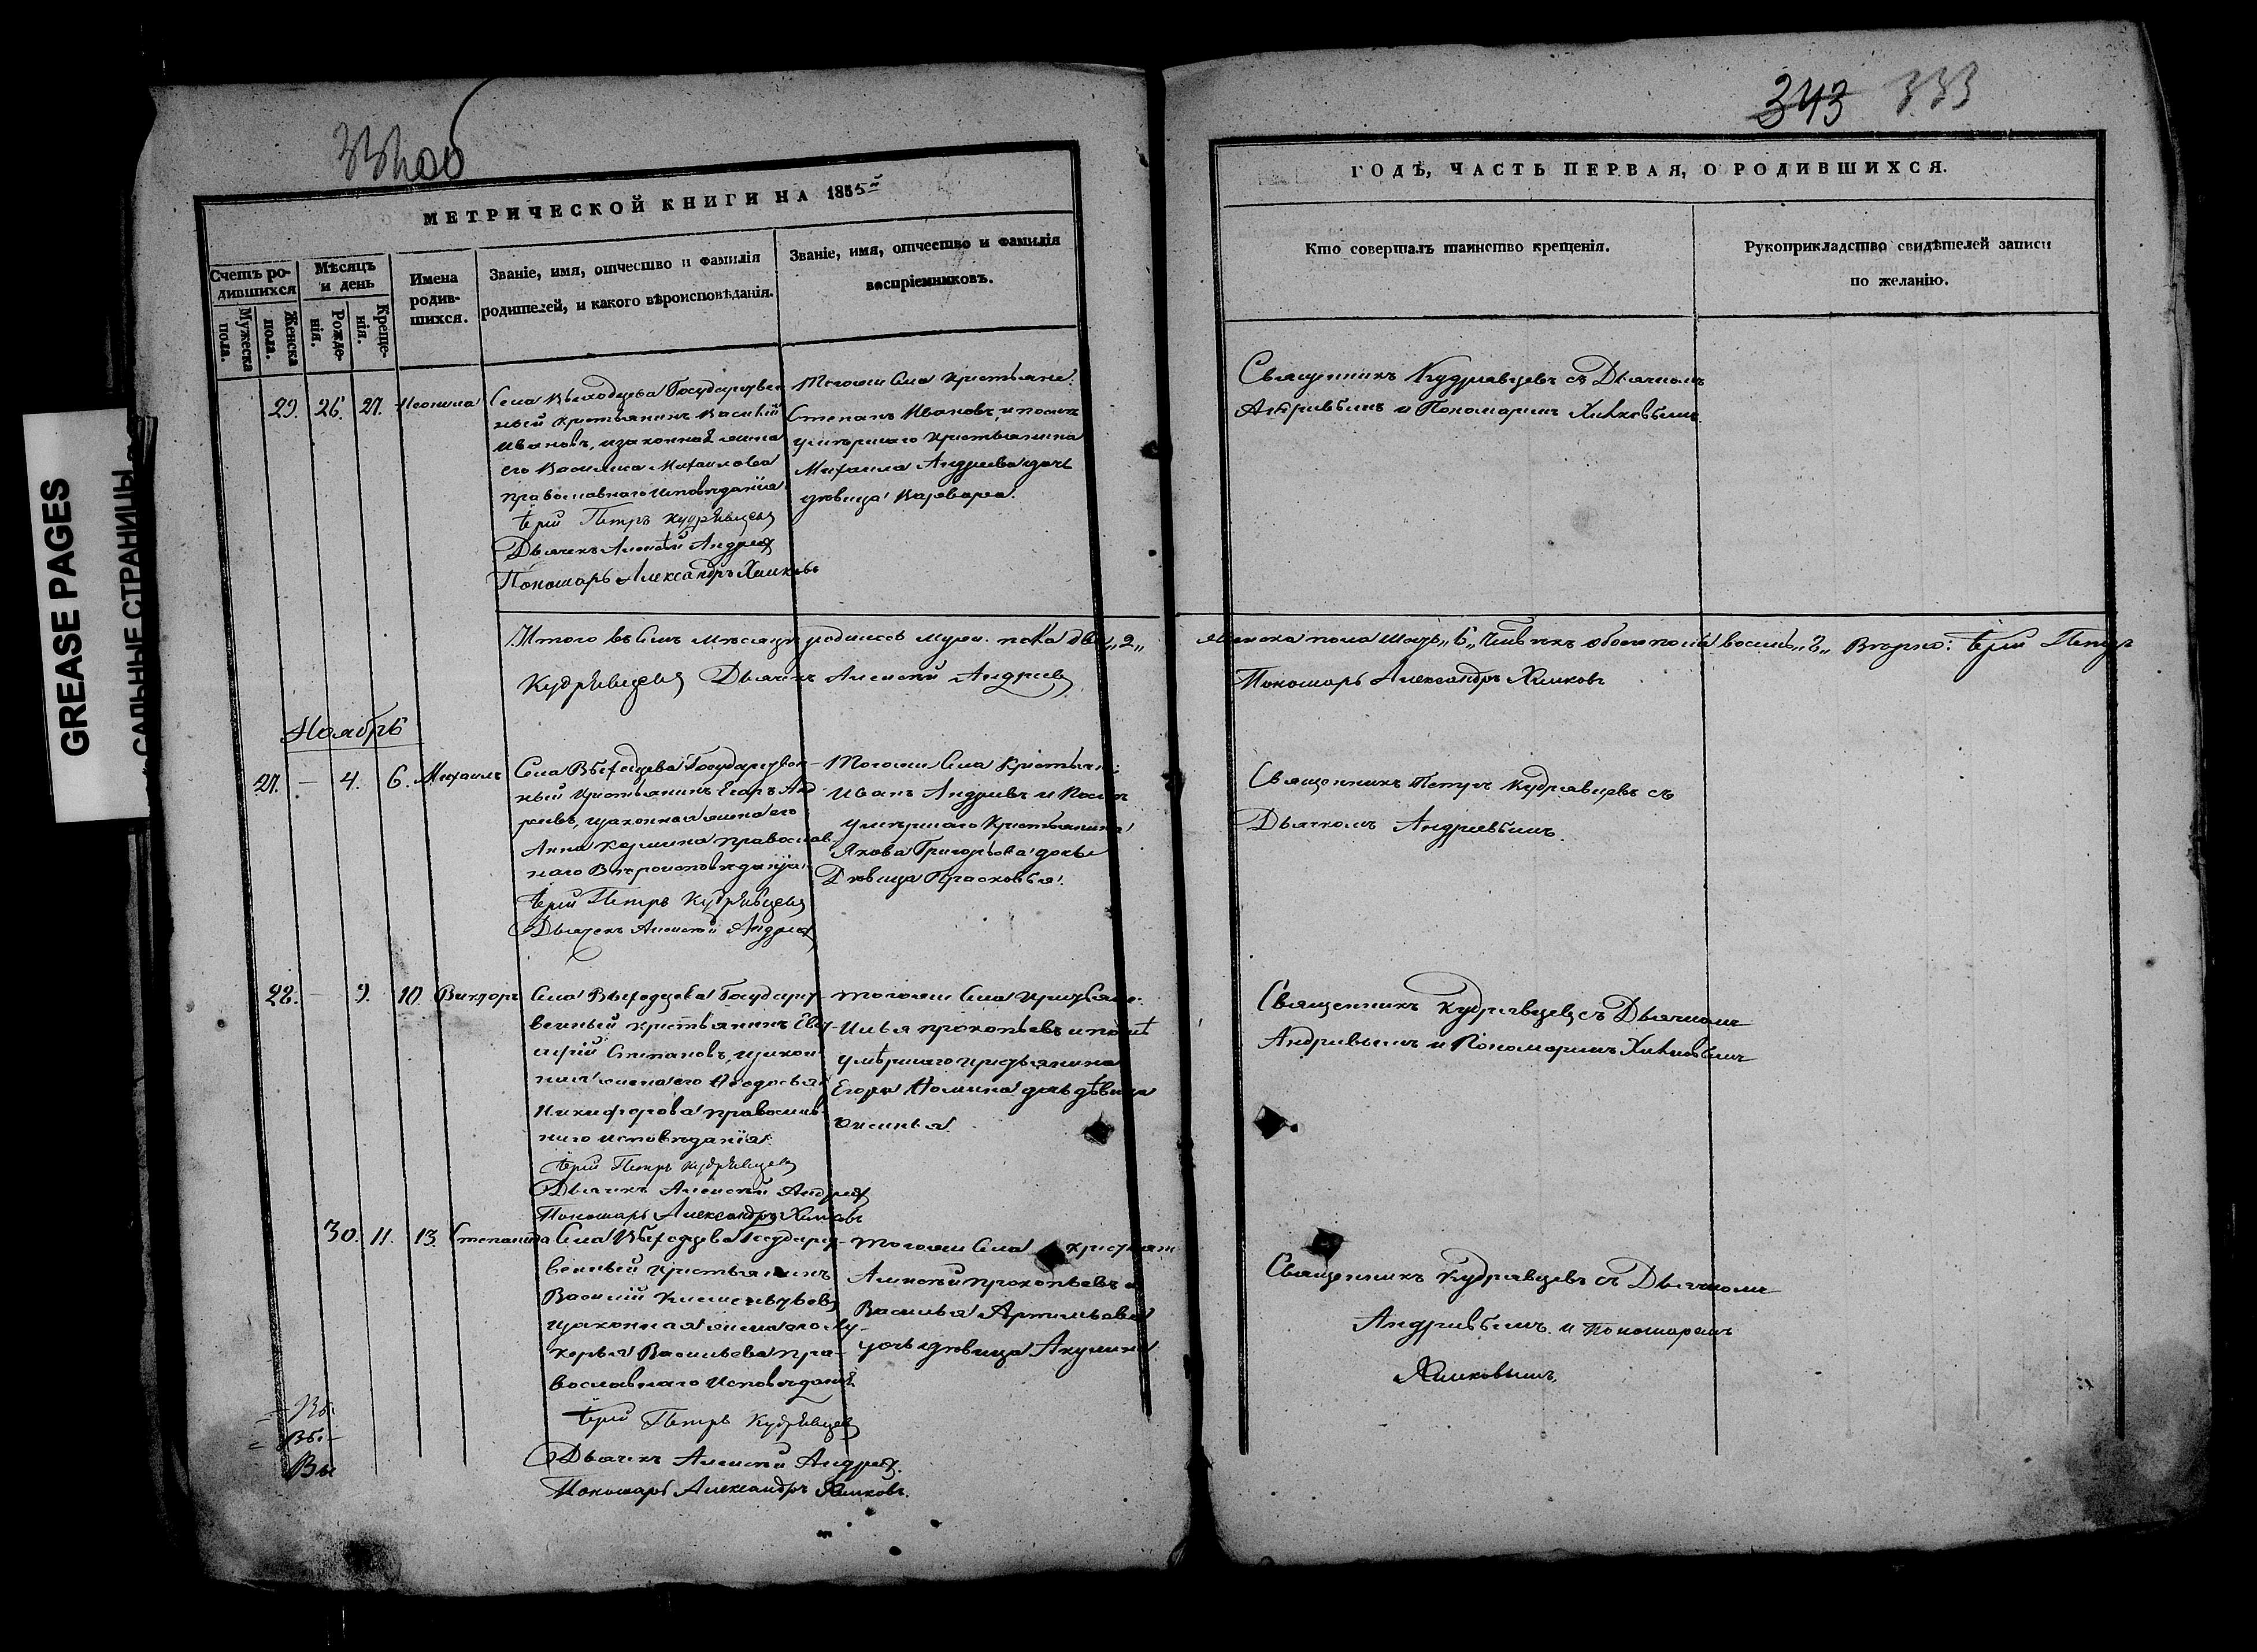 GREASE PAGES
САЛЬНЫЕ СТРАНИЦЫ
343 333
МЕТРИЧЕСКОЙ КНИГИ НА 1855
Счетъ родившихся
Мужеска пола.
Женска пола.
Мѣсяцъ и день
Рожденія.
Крещенія.
Имена родившихся.
Званіе, имя, отчество и фамилія
родителей, и какого вѣроисповѣданія.
Званіе, имя, отчество и фамилія
воспріемниковъ.
29. 26. 27. Неонила
Села Выходцева Государствен
ный крестьянинъ Василій
Ивановъ, и законная жена
его Василиса Михаилова
православнаго исповѣданія
Іерей Петръ Кудрявцевъ
Дьячекъ Алексѣй Андреевъ
Пономарь Александръ Химковъ
Тогоже Села Крестьяне:
Степанъ Ивановъ и послѣ
умершаго Крестьянина
Михаила Андреева дочь
дѣвица Варвара.
Итого въ семъ мѣсяцѣ родилось муж. пола два „2„
Кудрявцевъ Дьячекъ Алексѣй Андреевъ
Ноябрь
27. — 4. 6. Михаилъ
Села Выходцева Государствен-
ный Крестьянинъ Егоръ Анд
реевъ, и законная жена его
Анна Козмина православ
наго Вѣроисповѣданія
Іерей Петръ Кудрявцевъ
Дьячекъ Алексѣй Андреевъ
Тогоже Села Крестьяне:
Иванъ Андреевъ и Послѣ
умершаго Крестьянина
Якова Григорьева дочь
Дѣвица Прасковья.
28. — 9. 10. Викторъ
Села Выходцева Государст-
венный крестьянинъ Евс
Степановъ, и закон
ная жена его Ѳеодосья
Никифорова православ
наго исповѣданія
Іерей Петръ Кудрявцевъ
Дьячекъ Алексѣй Андреевъ
Пономарь Александръ Химковъ
Тогоже Села Крестьяне:
Илья Прокопьевъ и послѣ
умѣршаго крестьянина
Егора Ѳомина дочь дѣвица
30. 11. 13. Степанида
Села Выходцева Государст-
венный Крестьянинъ
Василій Климентьевъ
и законная жена его Лу-
керья Васильева пра-
вославнаго Исповѣданія
Іерей Петръ Кудрявцевъ
Дьячекъ Алексѣй Андреевъ.
Пономарь Александръ Химковъ.
Тогоже Села крестьян
Алексѣй Прокопьевъ и
Василья Артемьева
дочь дѣвица Акулина
Вы
ГОДЪ, ЧАСТЬ ПЕРВАЯ, О РОДИВШИХСЯ.
Кто совершалъ таинство крещенія.
Рукоприкладство свидѣтелей записи
по желанію.
Священникъ Кудрявцевъ съ Дьячкомъ
Андреевымъ и Пономаремъ Химковымъ
женска пола шесть „6„ человѣкъ обоего пола восемь „8„ Вѣрно: Іерей Петръ
Пономарь Александръ Химковъ
Священникъ Петръ Кудрявцевъ съ
Дьячкомъ Андреевымъ
Священникъ Кудрявцевъ съ Дьячкомъ
Андреевымъ и Пономаремъ Химковымъ
Священникъ Кудрявцевъ съ Дьячкомъ
Андреевымъ и Пономаремъ
Химковымъ.